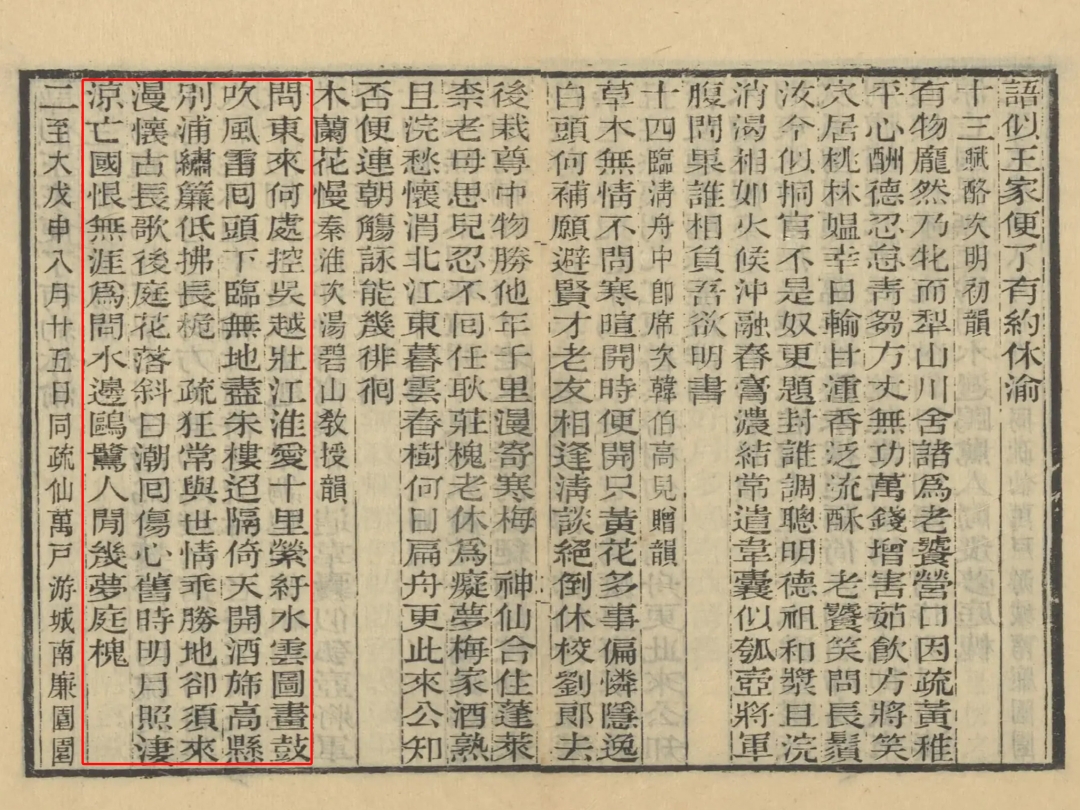 語似王家便了有約休渝
十三賦酪次明初韻
有物龐然乃牝而犁山川舍諸爲老饕營口因疏黃稚
平心酬德忍怠靑芻方丈無功萬錢增害茹飲方將笑
穴居桃林媼幸日輸甘湩香泛流酥　老饕笑問長鬚
汝今似挏官不是奴更題封誰調聰明德祖和漿且浣
消渴相如火候沖融春膏濃結常遣韋囊似瓠壺將軍
腹問果誰相負吾欲明書
十四臨淸舟中卽席次韓伯高兒贈韻
草木無情不問寒暄開時便開只黃花多事偏憐隱逸
白頭何補願避賢才老友相逢淸談絕倒休校劉郞去
後栽尊中物勝他年千里漫寄寒梅　神仙合住蓬萊
柰老母思兒忍不囘任耿莊槐老休爲癡夢梅家酒熟
且浣愁懷渭北江東暮雲春樹何日扁舟更此來公知
否便連朝觴詠能幾徘徊
木蘭花慢秦淮次湯碧山敎授韻
問東來何處控吳越壯江淮愛十里縈紆水雲圖畫鼓
吹風雷囘頭下臨無地盡朱樓迢隔倚天開酒斾高懸
別浦繡簾低拂長桅　疏狂常與世情乖勝地卻須來
漫懷古長歌後庭花落斜日潮囘傷心舊時明月照淒
涼亡國恨無涯爲問水邊鷗鷺人閒幾夢庭槐
二至大戊申八月廿五日同疏仙萬戸游城南廉園園